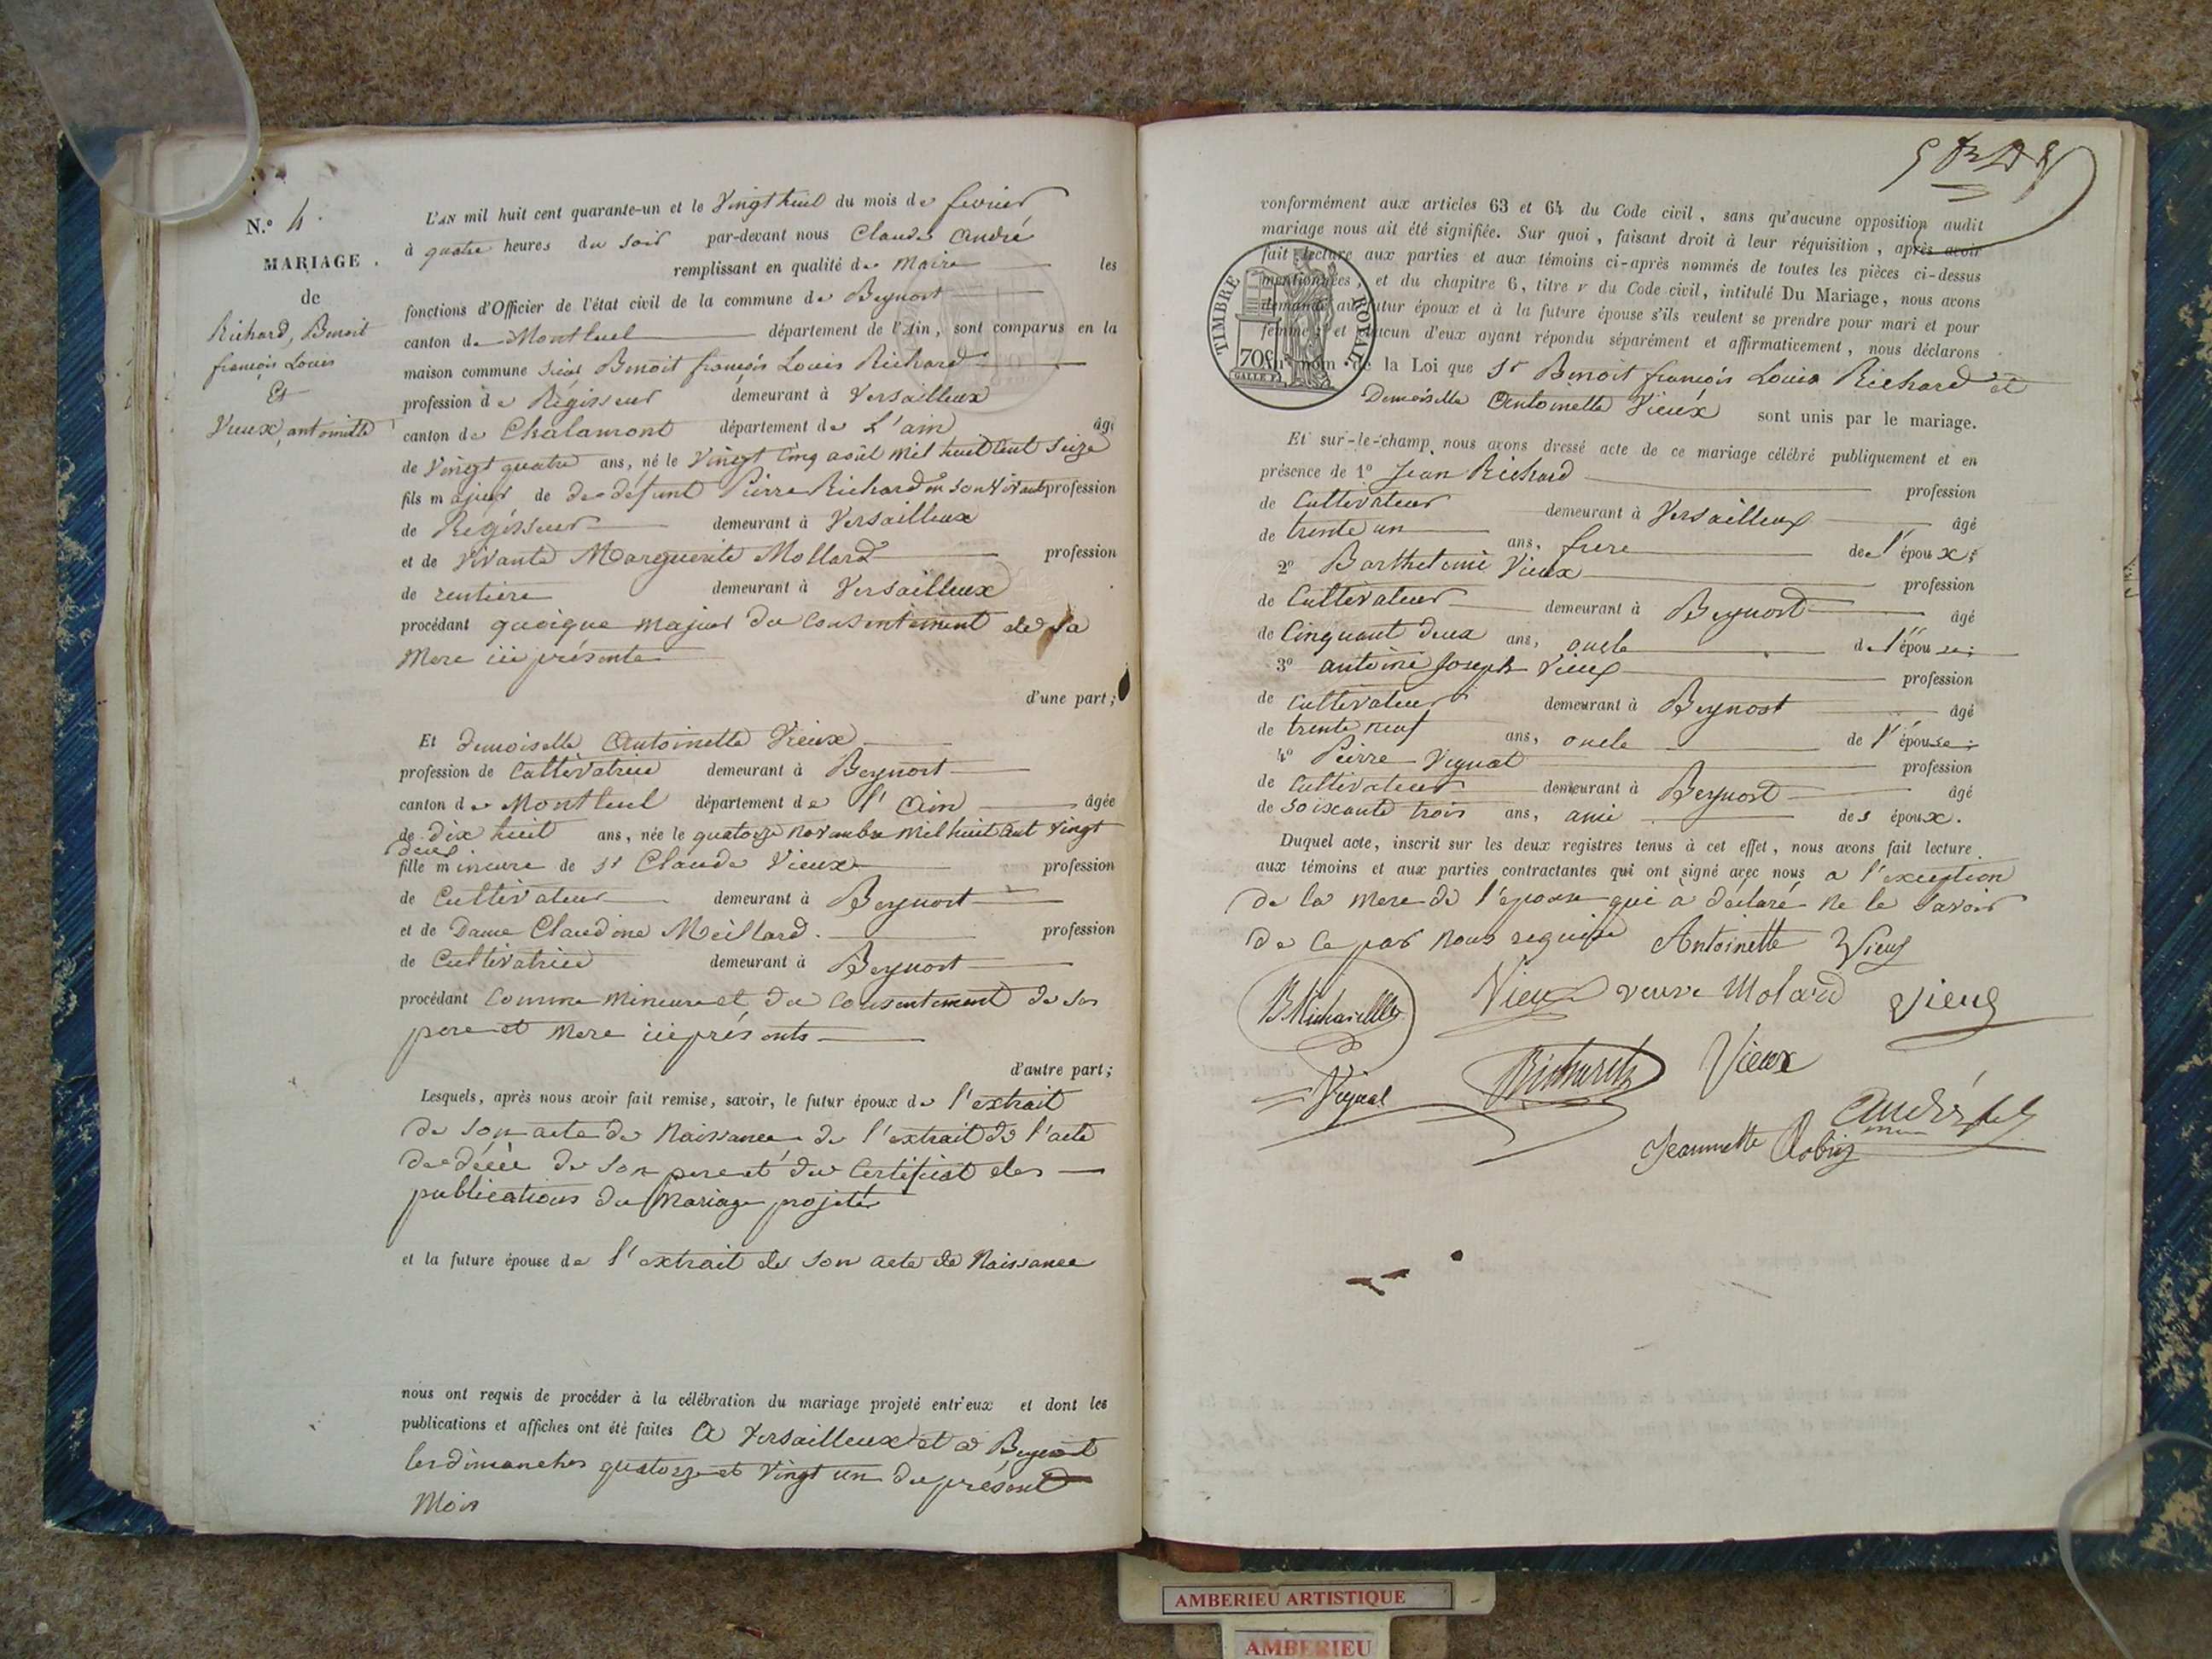 N.° 4.
MARIAGE.
de
Richard, Benoit
françois Louis
Et
Vieux, antoinette
L'AN mil huit cent quarante-un et le Vingt huit du mois de fevrier
à quatre heures du soir par-devant nous Claude André
remplissant en qualité de Maire les
fonctions d'Officier de l'état civil de la commune de Beynost
canton de Montluel département de l'Ain, sont comparus en la
maison commune Benoit françois Louis Richard
profession de Régisseur demeurant à Versailleux
canton de Chalamont département de L'ain âgé
de Vingt quatre ans, né le Vingt Cinq août Mil huit Cent Seize
fils majeur de defunt Pierre Richard en son Vivant profession
de Régisseur demeurant à Versailleux
et de Vivante Marguerite Mollard profession
de rentière demeurant à Versailleux
procédant quoique majeur du Consentement de sa
Mere ici présente
d'une part;
Et demoiselle Antoinette Vieux
profession de Cultivatrice demeurant à Beynost
canton de Montluel département de l'Ain âgée
de dix huit ans, née le quatorze Novembre Mil huit Cent Vingt
deux
fille mineure de Sr Claude Vieux profession
de Cultivateur demeurant à Beynost
et de Dame Claudine Meillard. profession
de Cultivatrice demeurant à Beynost
procédant Comme Mineure et du Consentement de ses
pere et Mere ici présents
d'autre part;
Lesquels, après nous avoir fait remise, savoir, le futur époux de l'extrait
de son acte de Naissance de l'extrait de l'acte
de décè de son pere et du Certificat des
publications du Mariage projeté
et la future épouse de l'extrait de son acte de Naissance
nous ont requis de procéder à la célébration du mariage projeté entr'eux et dont les
publications et affiches ont été faites A Versailleux et a Beynost
les dimanches quatorze et Vingt un du présent
Mois
conformément aux articles 63 et 64 du Code civil, sans qu'aucune opposition audit
mariage nous ait été signifiée. Sur quoi, faisant droit à leur réquisition, après avoir
fait lecture aux parties et aux témoins ci-après nommés de toutes les pièces ci-dessus
mentionnées, et du chapitre 6, titre v du Code civil, intitulé Du Mariage, nous avons
demandé au futur époux et à la future épouse s'ils veulent se prendre pour mari et pour
femme; et chacun d'eux ayant répondu séparément et affirmativement, nous déclarons
Au nom de la Loi que Sr Benoit françois Louis Richard et
Demoiselle Antoinette Vieux sont unis par le mariage.
TIMBRE ROYAL
70c
GALLE F.
Et sur-le-champ nous avons dressé acte de ce mariage célébré publiquement et en
présence de 1° Jean Richard profession
de Cultivateur demeurant à Versailleux âgé
de trente un ans, frere de l'époux;
2° Barthelemi Vieux profession
de Cultivateur demeurant à Beynost âgé
de Cinquant deux ans, oncle de l'épouse;
3° antoine Joseph Vieux profession
de Cultivateur demeurant à Beynost âgé
de trente neuf ans, oncle de l'épouse;
4° Pierre Vignat profession
de Cultivateur demeurant à Beynost âgé
de soixante trois ans, ami des époux.
Duquel acte, inscrit sur les deux registres tenus à cet effet, nous avons fait lecture
aux témoins et aux parties contractantes qui ont signé avec nous a l'exception
de la Mere de l'épouse qui à déclaré Ne le Savoir
de Ce par Nous requise Antoinette Vieux
Vieux veuve Molard Vieux
Vignat Richard Vieux
André
Jeannette Robin
AMBERIEU ARTISTIQUE
AMBERIEU